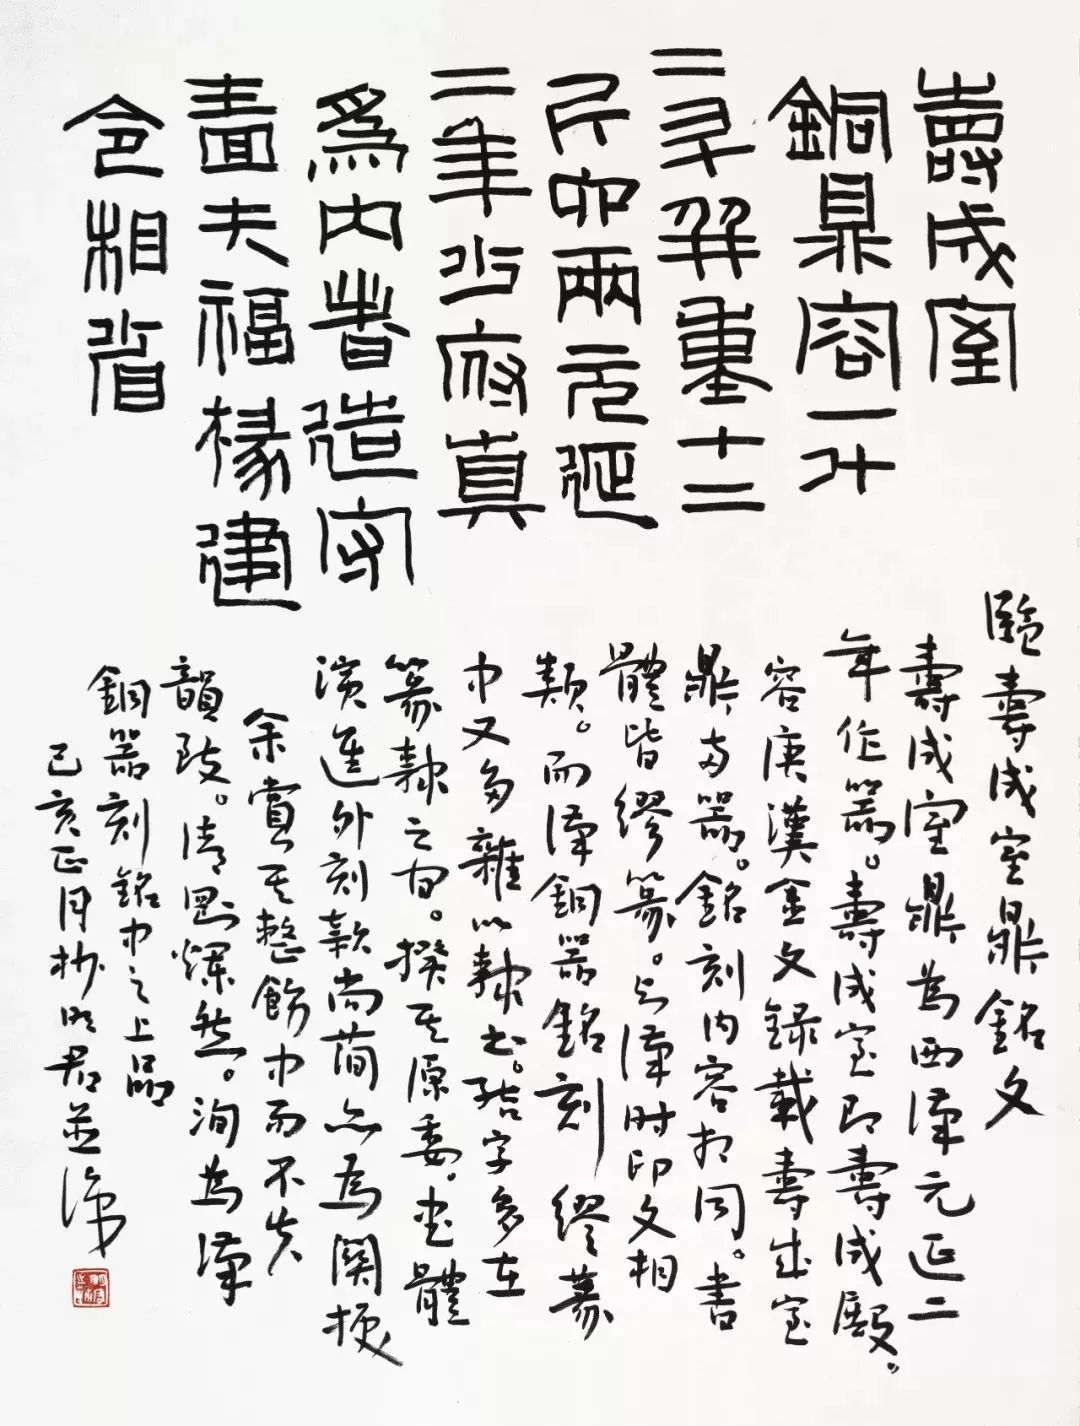 壽成室
銅鼎容一升
二斗幷重十二
斤卯兩元延
二年少府真
為內者造守
嗇夫福掾建
令相省
臨壽成室鼎銘文
壽成室鼎為西漢元延二
年作器。壽成室即壽成殿。
容庚漢金文録載壽成室
鼎兩器。銘刻內容相同。書
體皆繆篆。與漢時印文相
類。而漢銅器銘刻繆篆
中又多雜以隸書。結字多在
篆隸之間。揆其原委。書體
演進外刻款尚簡亦為関梗
余賞其整飭中而不失
韻致。清剛爍然。洵為漢
銅器刻銘中之上品
己亥正月抄明君並識